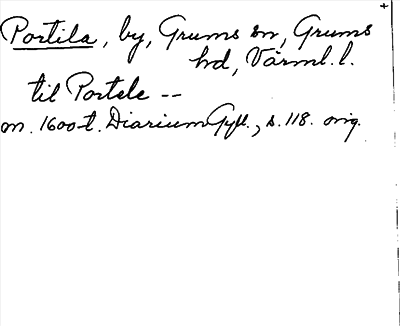 Portila, by, Grums sn, Grums
hd, Värml. l.
til Portele --
m. 1600-t. Diarium Gyll., s. 118. orig.